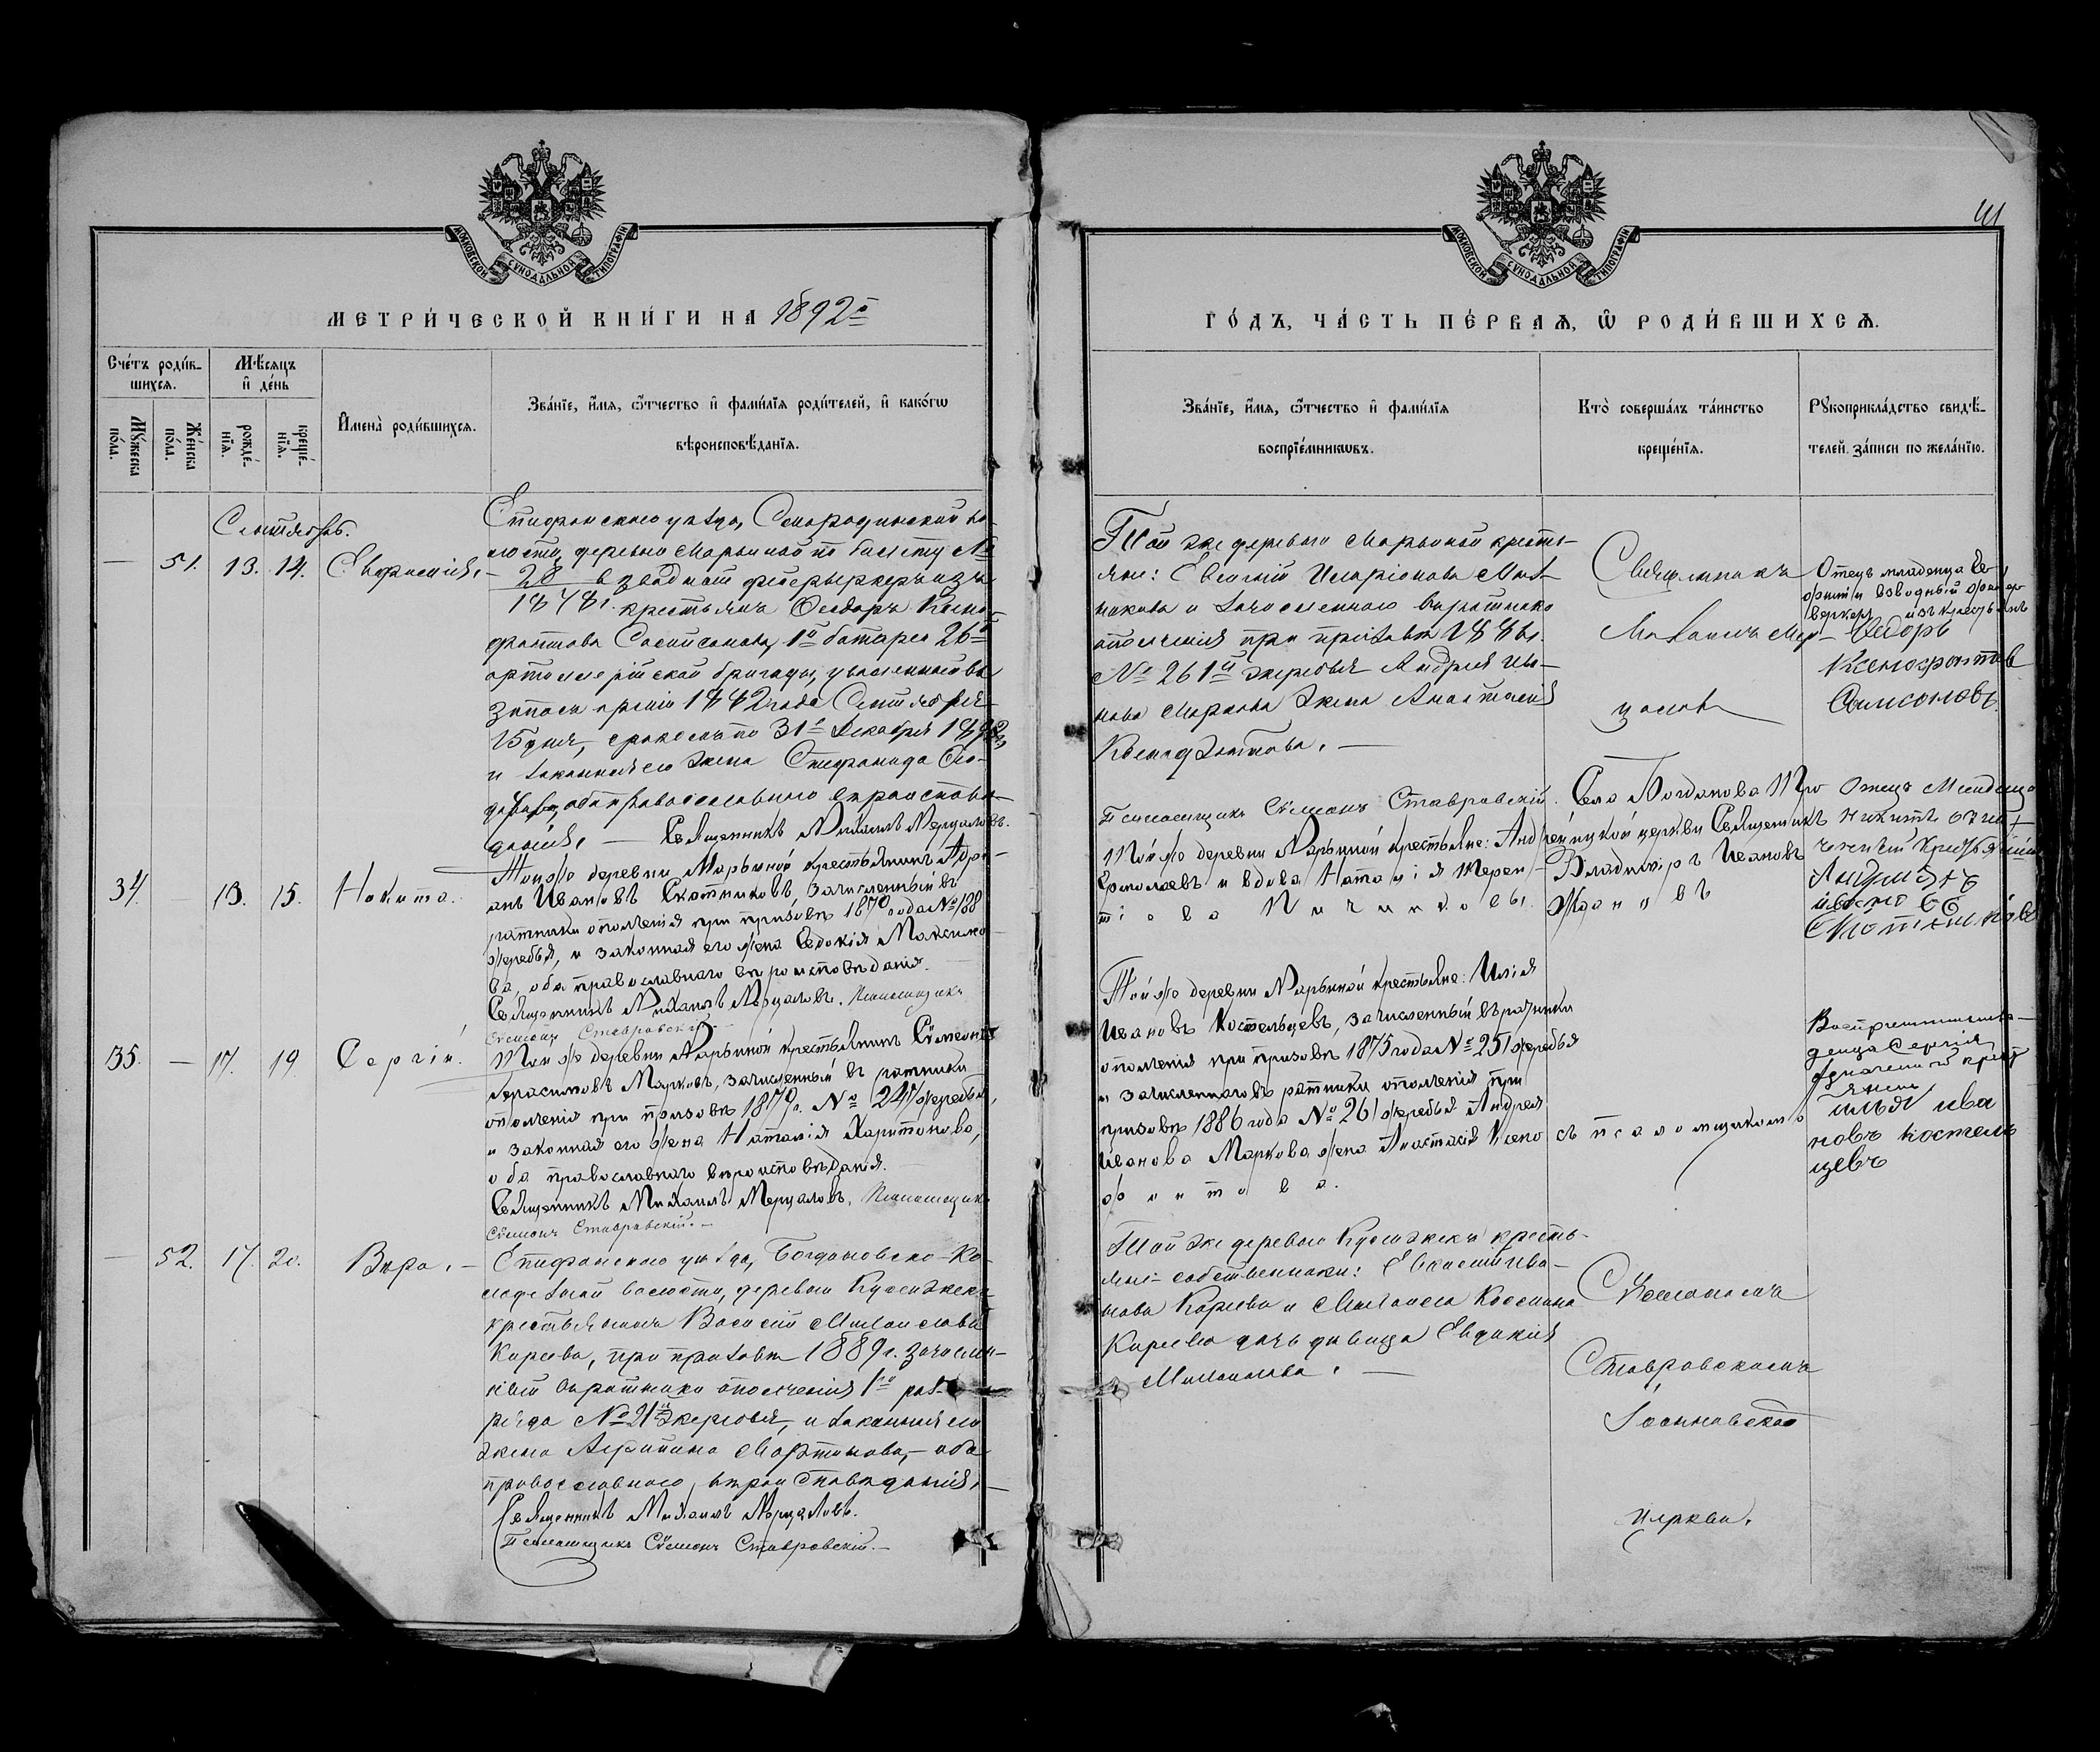 МОСКОВСКОЙ СѴНОДАЛЬНОЙ ТИПОГРАФІИ
МЕТРИ́ЧЕСКОЙ КНИ́ГИ НА 1892й
Сче́тъ роди́в-
шихсѧ.
Мѣ́сѧцъ
и҆ де́нь
Мꙋ́жеска
по́ла.
Же́нска
по́ла.
рожде́-
нїѧ.
креще́-
нїѧ.
И҆мена̀ роди́вшихсѧ.
Зва́нїе, и҆́мѧ, ѻ҆́тчество и҆ фами́лїѧ роди́телей, и҆ како́гѡ
вѣроисповѣ́данїѧ.
Сентябрь.
— 51. 13. 14. Евфимія
Епифанскаго уѣзда, во-
лости, деревни Марьиной по билету №
28 взводный фейерверкеръ изъ
1878 г. крестьянъ Ѳеодоръ Ксено-
фонтовъ 1й батареи 26й
артиллерійской бригады, уволенный въ
запасъ арміи 1882 года Сентября
15 дня, срокомъ по 31е Декабря
и законная его жена Стефанида
оба православнаго вѣроисповѣ-
данія. — Священникъ Михаилъ Мерцаловъ.
34. — 13. 15. Никита.
Той же деревни Марьиной крестьянинъ Адрі-
анъ Ивановъ Скотниковъ, зачисленный въ
ратники ополченія при призывѣ 1879 года № 188
жеребья, и законная его жена Евдокія Максимо-
ва, оба православнаго вѣроисповѣданія.
Священникъ Михаилъ Мерцаловъ. Псаломщикъ
Сѵмеонъ Ставровскій.—
35. — 17. 19 Сергій.
Той же деревни Марьиной крестьянинъ Сѵмеонъ
Герасимовъ Марковъ, зачисленный въ ратники
ополченія при призывѣ 1879 г. № 247 жеребья,
и законная его жена Наталія Харитонова,
оба православнаго вѣроисповѣданія.
Священникъ Михаилъ Мерцаловъ. Псаломщикъ
Сѵмеонъ Ставровскій.—
— 52. 17. 20. Вѣра. —
Епифанскаго уѣзда, Богдановско-Ко-
лодезной волости, деревни
крестьянинъ Василій Михаиловъ
Киреевъ, при призывѣ 1889 г. зачислен-
ный въ ратники ополченія 1го раз-
ряда № 21й жеребья, и законная его
жена Агрипина Мартинова,— оба
православнаго вѣроисповѣданія.—
Священникъ Михаилъ Мерцаловъ.
Псаломщикъ Сѵмеонъ Ставровскій.—
МОСКОВСКОЙ СѴНОДАЛЬНОЙ ТИПОГРАФІИ
ГО́ДЪ, ЧА́СТЬ ПЕ́РВАѦ, Ѡ҆ РОДИ́ВШИХСѦ.
Зва́нїе, и҆́мѧ, ѻ҆́тчество и҆ фами́лїѧ
воспрїе́мникѡвъ.
Кто̀ соверша́лъ та́инство
креще́нїѧ.
Рꙋкоприкла́дство свидѣ́-
телей за́писи по жела́нїю.
Той же деревни Марьиной крестья-
яне: Евгеній Иларіоновъ
и зачисленнаго въ ратники
ополченія при призывѣ 1886 г.
№ 261й жеребья Андрея Ива-
нова Маркова жена Анастасія
Ксенофонтова. —
Священникъ
Михаилъ Мер-
цаловъ
Отецъ младенца Ев-
фиміи взводный фейер-
веркеръ изъ крестьянъ
Ѳедоръ
Ксенофонтов
Самсоновъ
Псаломщикъ Сѵмеонъ Ставровскій.
Той же деревни Марьиной крестьяне: Андрей
Ермолаевъ и вдова Наталія Терен-
тіева Пичиковы.
Села Богданова Тро-
ицкой церкви Священникъ
Владиміръ Ивановъ
Ждановъ
Отецъ Младенца
Никиты
Скотниковъ
Той же деревни Марьиной крестьяне: Илія
Ивановъ Костельцевъ, зачисленный въ ратники
ополченія при призывѣ 1875 года № 251 жеребья
и зачисленнаго въ ратники ополченія при
призывѣ 1886 года № 261 жеребья Андрея
Иванова Маркова жена Анастасія Ксено-
фонтова.
съ псаломщикомъ
денца Сергія
Илья Ива
новъ костель
цевъ
Той же деревни кресть-
яне-собственники: Ива-
новъ Киреевъ и Михаила Космина
Киреева дочь дѣвица Евдокія
Михаилова. —
Сѵмеономъ
Ставровскимъ
Іоанновской
церкви.